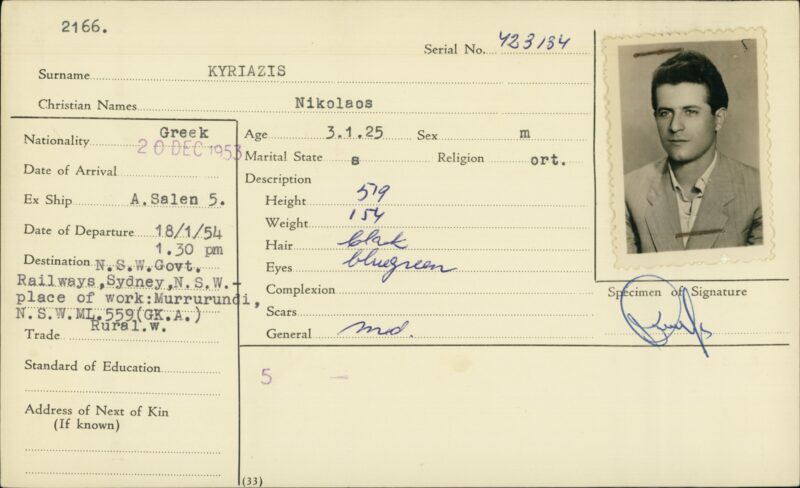 2166.
Serial No. 423134
Surname KYRIAZIS
Christian Names Nikolaos
Nationality Greek
20 DEC 1953
Date of Arrival
Ex Ship A.Salen 5.
Date of Departure 18/1/54
1.30 pm
Destination N.S.W.Govt.
Railways,Sydney,N.S.W.-
place of work:Murrurundi,
N.S.W.ML.559(GK.A.)
Trade Rural.w.
Standard of Education
Address of Next of Kin
(If known)
Age 3.1.25 Sex m
Marital State s Religion ort.
Description
Height 5'9
Weight 154
Hair black
Eyes bluegreen
Complexion
Scars
General med.
Specimen of Signature
5 —
(33)